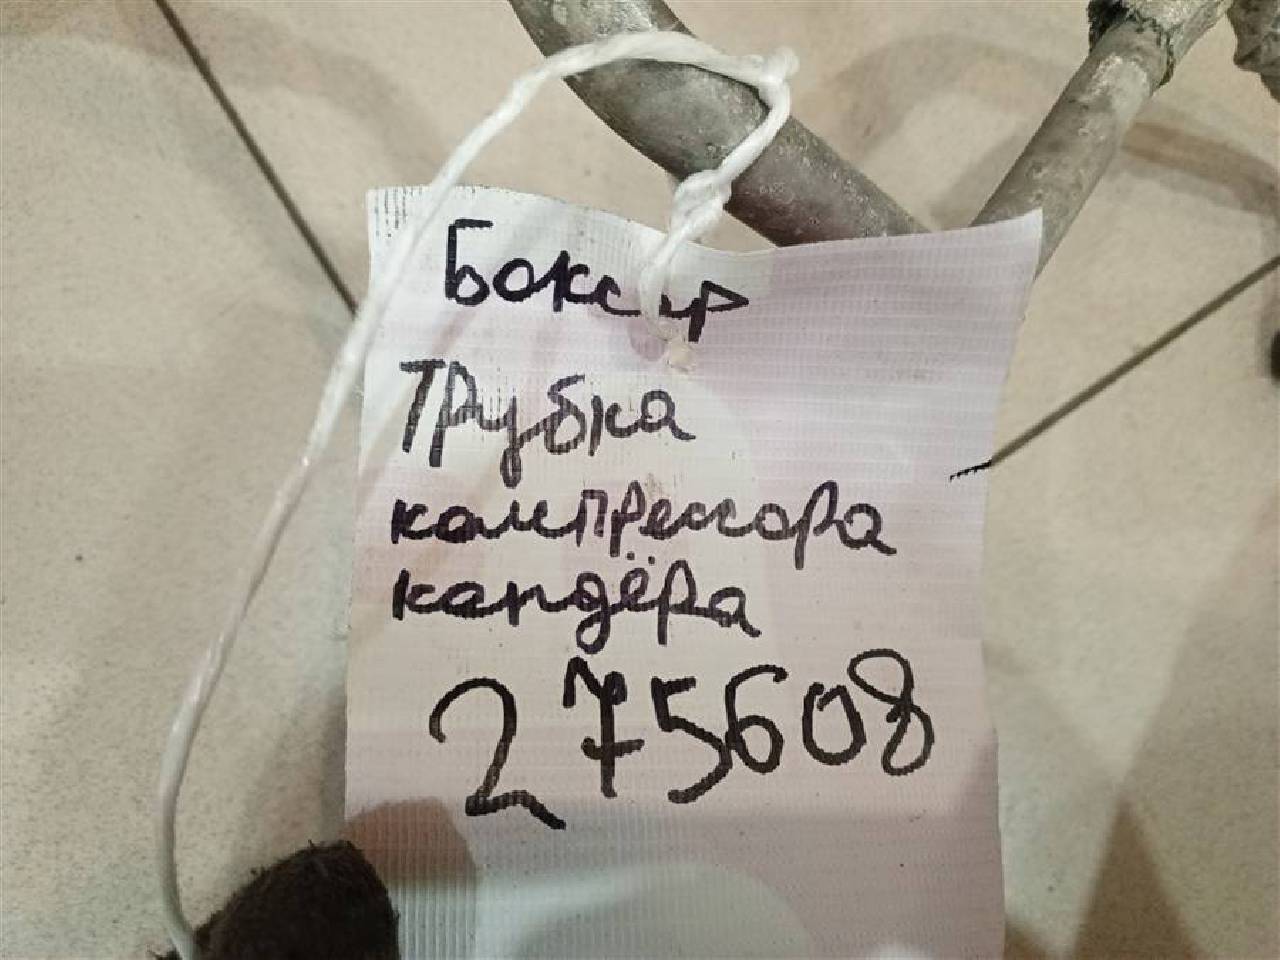 Боксер
Трубка
компрессора
кандёра
275608